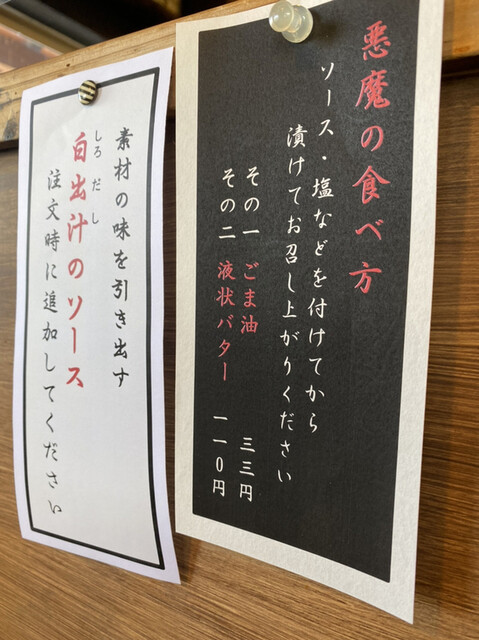 悪魔の食べ方
ソース・塩などを付けてから
漬けてお召し上がりください
その一 ごま油 三三円
その二 液状バター 一一〇円
素材の味を引き出す
しろだし
白出汁のソース
注文時に追加してください